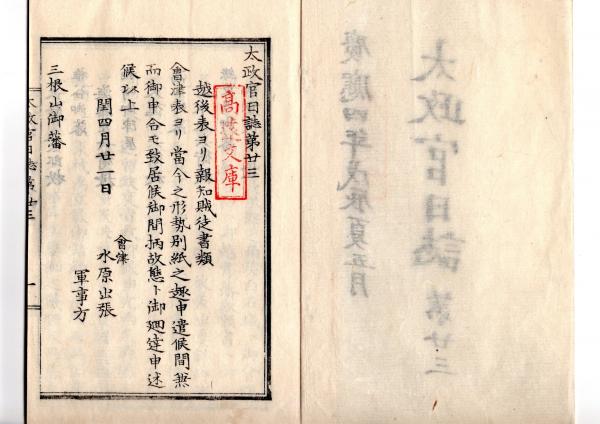 太政官日誌
第廿三
慶應四年戊辰夏五月
太政官日誌第廿三
越後表ヨリ報知賊徒書類
會津表ヨリ當今之形勢別紙之趣申遣候間無
而御申合モ致居候御間柄故態ト御廻達申述
候以上
閏四月廿一日
會津
水原出張
軍事方
三根山御藩
太政官日誌第廿三
一
文庫